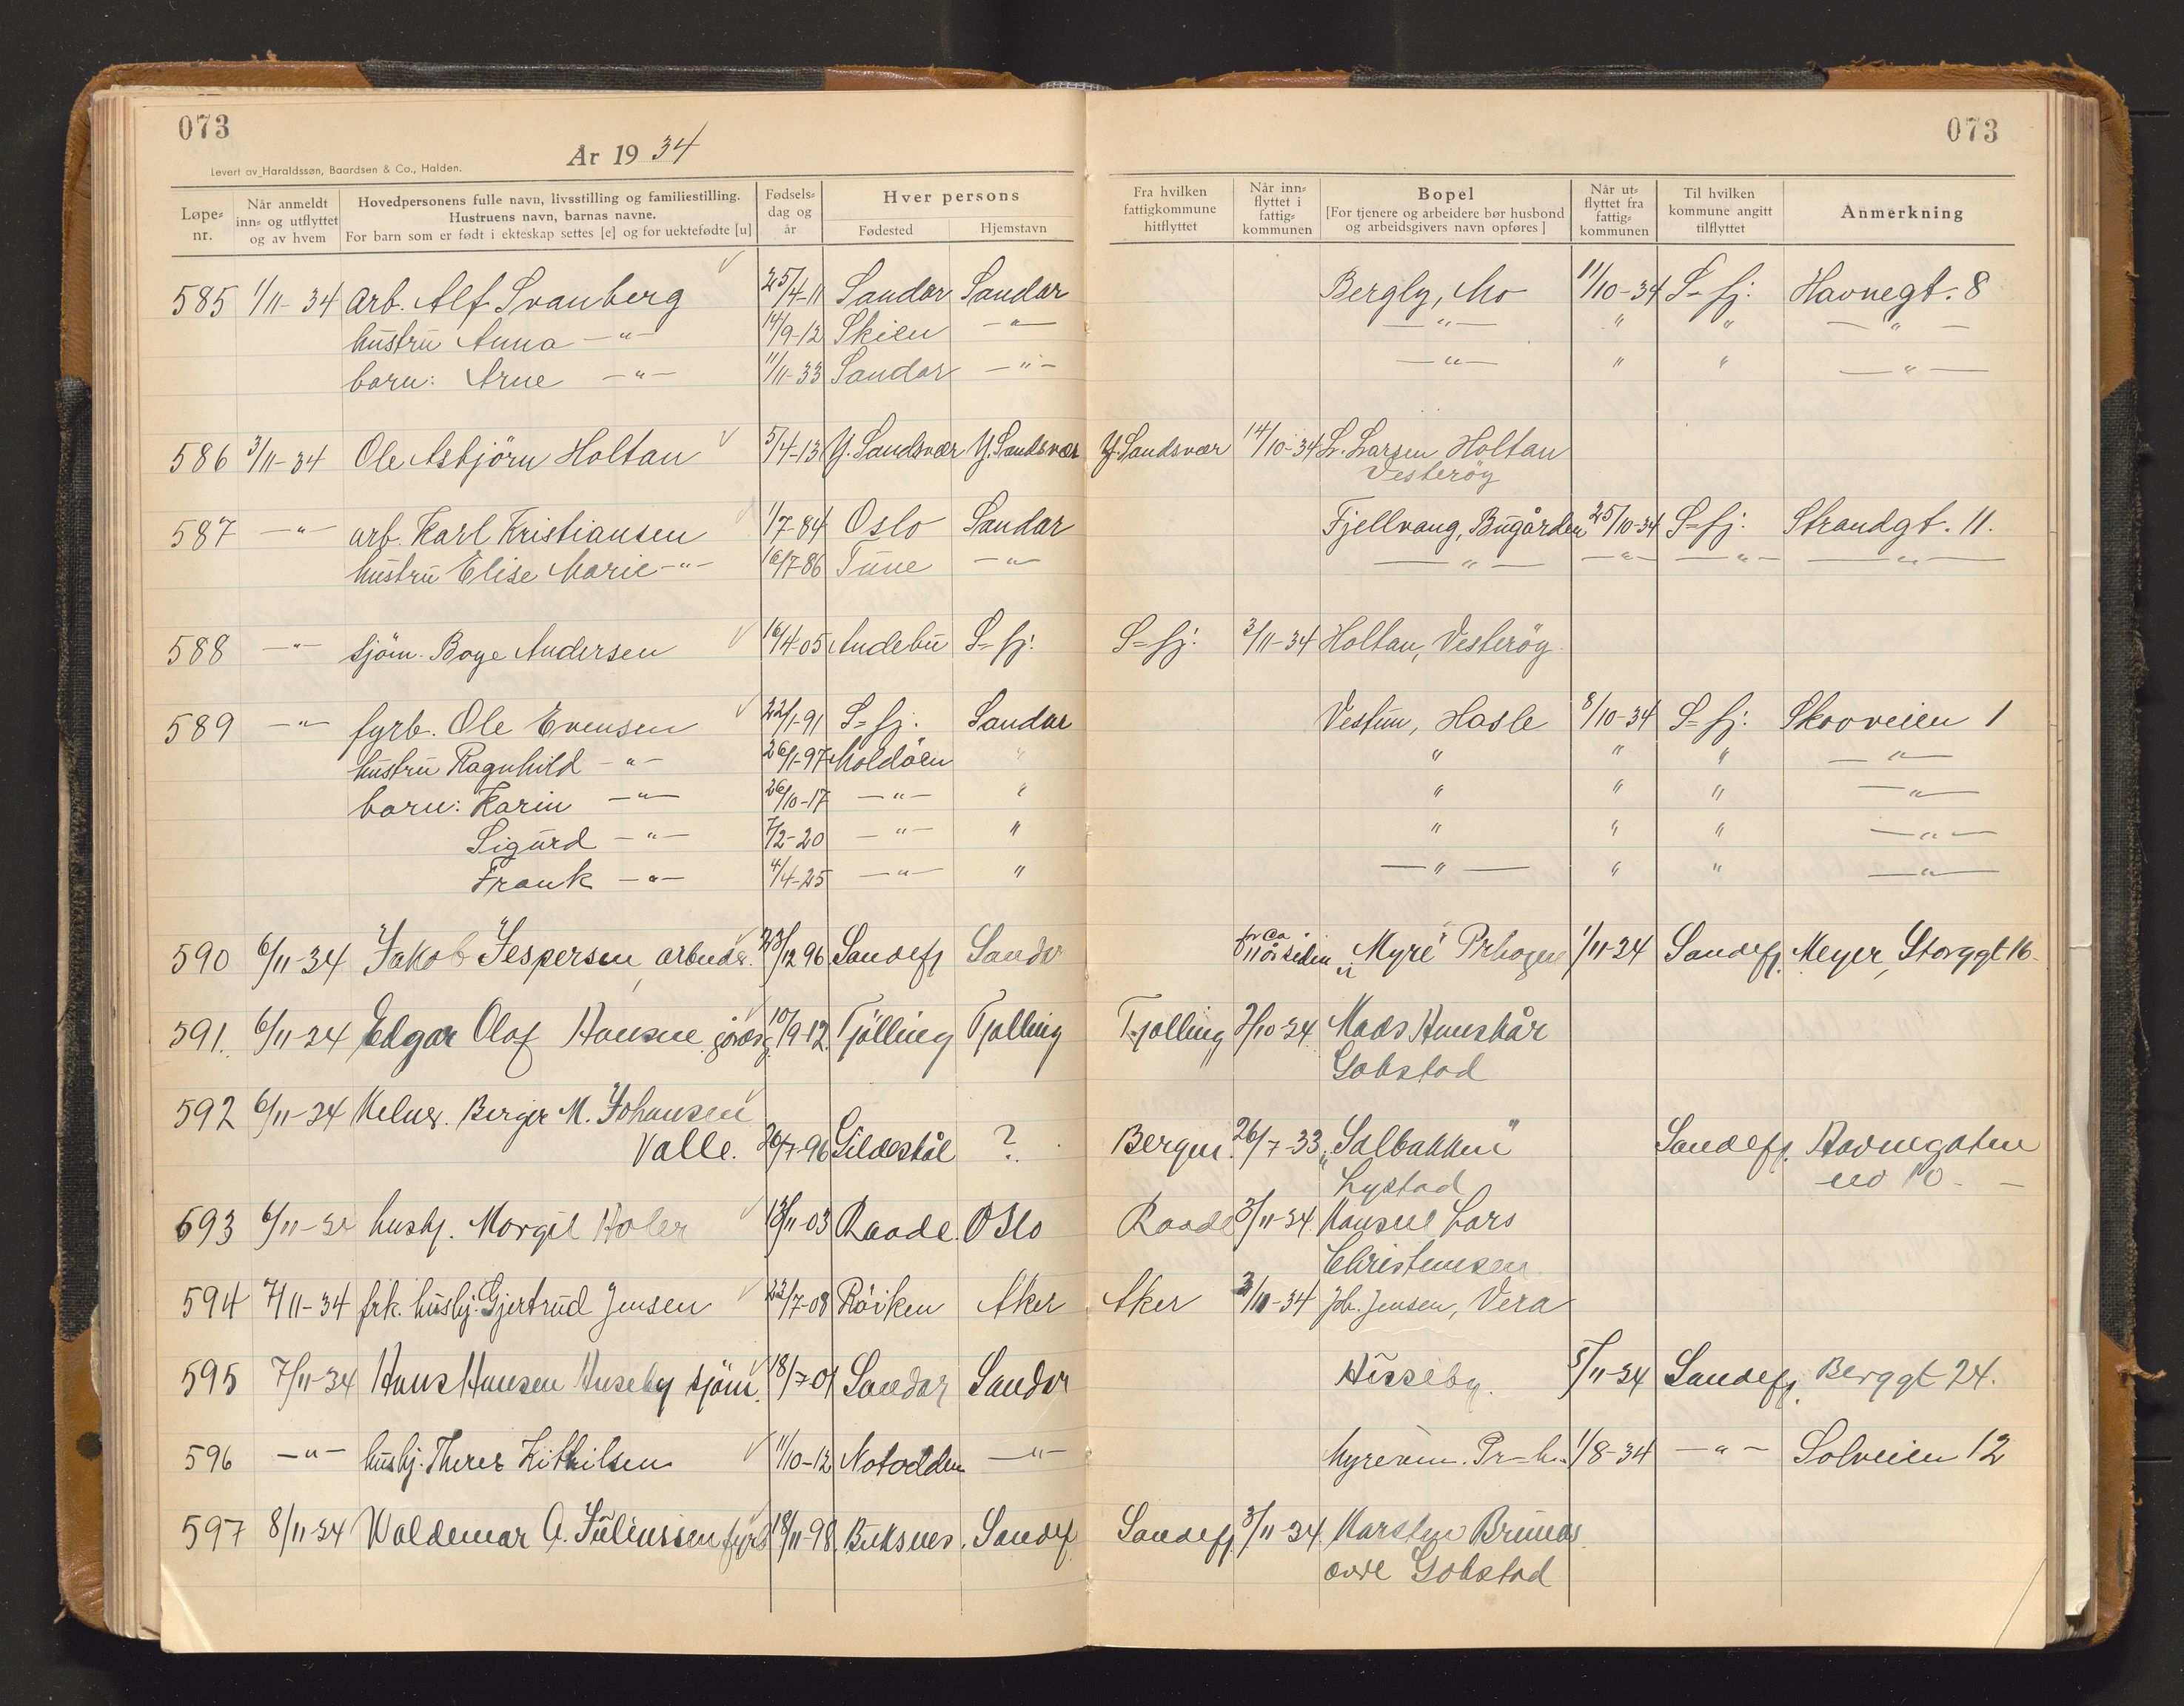 073
År 1934
Levert av Haraldssøn, Baardsen & Co., Halden.
Løpe-nr. Når anmeldt inn- og utflyttet og av hvem Hovedpersonens fulle navn, livsstilling og familiestilling. Hustruens navn, barnas navne. For barn som er født i ekteskap settes [e] og for uektefødte [u] Fødsels-dag og år Hver persons Fødested Hjemstavn
073
Fra hvilken fattigkommune hitflyttet Når inn-flyttet i fattig-kommunen Bopel [For tjenere og arbeidere bør husbond og arbeidsgivers navn opføres] Når ut-flyttet fra fattig-kommunen Til hvilken kommune angitt tilflyttet Anmerkning
585 1/11-34 Arb. Alf Svanberg 25/4-11 Sandar Sandar Bergly, Mo 11/10-34 S-fj: Havnegt. 8
hustru Anna -"- 14/9-12 Skien -"- -"- " " -"-
barn: Arne -"- 11/11-33 Sandar -"- -"- " " -"-
586 3/11-34 Ole Asbjörn Holtan 5/4-13 Y. Sandsvær Y. Sandsvær Y. Sandsvær 14/10-34 L. Larsen Holtan
Vesteröy
587 -"- arb. Karl Kristiansen 1/7-84 Oslo Sandar Fjellvang, Bugården 25/10-34 S-fj: Strandgt. 11.
hustru Elise Marie -"- 16/7-86 Tune -"- -"- -"- -"- -"-
588 -"- sjöm. Boye Andersen 16/4-05 Andebu S-fj: S-fj: 3/11-34 Holtan, Vesteröy
589 -"- fyrb. Ole Evensen 22/1-91 S-fj. Sandar Vestun, Hasle 8/10-34 S-fj: Skovveien 1
hustru Ragnhild -"- 26/1-97 Moldöen " " " " -"-
barn: Karin -"- 26/10-17 -"- " " " " -"-
Sigurd -"- 7/2-20 -"- " " " " -"-
Frank -"- 4/4-25 -"- " -"- " " -"-
590 6/11-34 Jakob Jespersen, arbeider. 23/12 96 Sandefj Sandar for ca. 11 år siden "Myre" Prhagen 1/11-34 Sandefj. Meyer, Storggt 16.
591. 6/11-34 Edgar Olaf Hansen 10/9-12. Tjølling Tjølling Tjølling 2/10-34 Mads
Gokstad
592 6/11-34 Kelner. Berger M. Johansen
Valle. 26/7-96 Gildeskål ? Bergen. 26/7-33 "Solbakken" Sandefj. Havnegaten
Lystad no 10 -
593 6/11-34 hushj. Margit Holer 13/11-03 Raade. Oslo Raade 3/11-34 Konsul Lars
Christensen
594 7/11-34 frk. hushj. Gjertrud Jensen 22/7-08 Röiken Aker Aker 3/10-34 Joh. Jensen, Vera
595 7/11-34 Hans Hansen Huseby sjöm. 18/7-01 Sandar Sandar Huseby. 5/11-34 Sandefj. Bergggt 24.
596 -"- hushj. Theres Kittilsen 11/10-12 Notodden -"- Myrevin. Pr-h. 1/8-34 -"- Solveien 12
597 8/11-34 Waldemar A. Juliussen fyrb 18/11-98. Buksnes. Sandefj. Sandefj. 3/11-34. Karsten Brunaas.
övre Gokstad